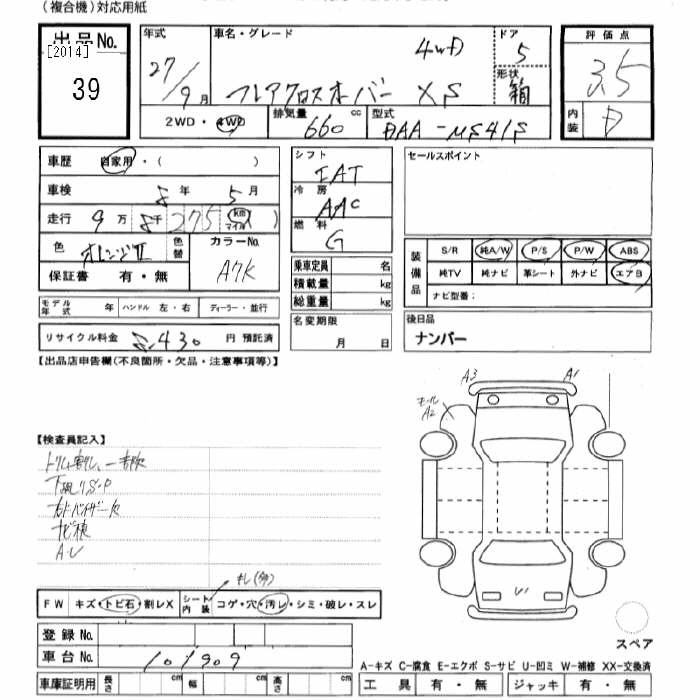 (複合機)対応用紙
出品No.
[2014]
39
年式
27/9月
車名・グレード
4WD
フレアクロスオーバー XS
ドア
5
形状
箱
評価点
3.5
内装
D
2WD・4WD
排気量
660 cc
型式
DAA-MS41S
車歴 自家用・( )
車検 8年 5月
走行 9万 8千 275 km マイル )
色 オレンジII 色替
カラーNo.
A7K
保証書 有・無
シフト
IAT
冷房
AAC
燃料
G
乗車定員 名
積載量 kg
総重量 kg
セールスポイント
装備品
S/R 純A/W P/S P/W ABS
純TV 純ナビ 革シート 外ナビ エアB
ナビ型番:
モデル年式 年 ハンドル 左・右 ディーラー・並行
リサイクル料金 8,430 円 預託済
名変期限
月 日
後日品
ナンバー
【出品店申告欄(不良箇所・欠品・注意事項等)】
A3 A1
モール
A2
【検査員記入】
トリム割レ、一部欠
下廻りS・P
ナビ検
キレ(多)
U1
FW キズ・トビ石・割レX
シート内装 コゲ・穴・汚レ・シミ・破レ・スレ
登録No.
車台No. 101909
車庫証明用 長さ cm 幅 cm 高さ cm
スペア
A-キズ C-腐食 E-エクボ S-サビ U-凹ミ W-補修 XX-交換済
工具 有・無 ジャッキ 有・無